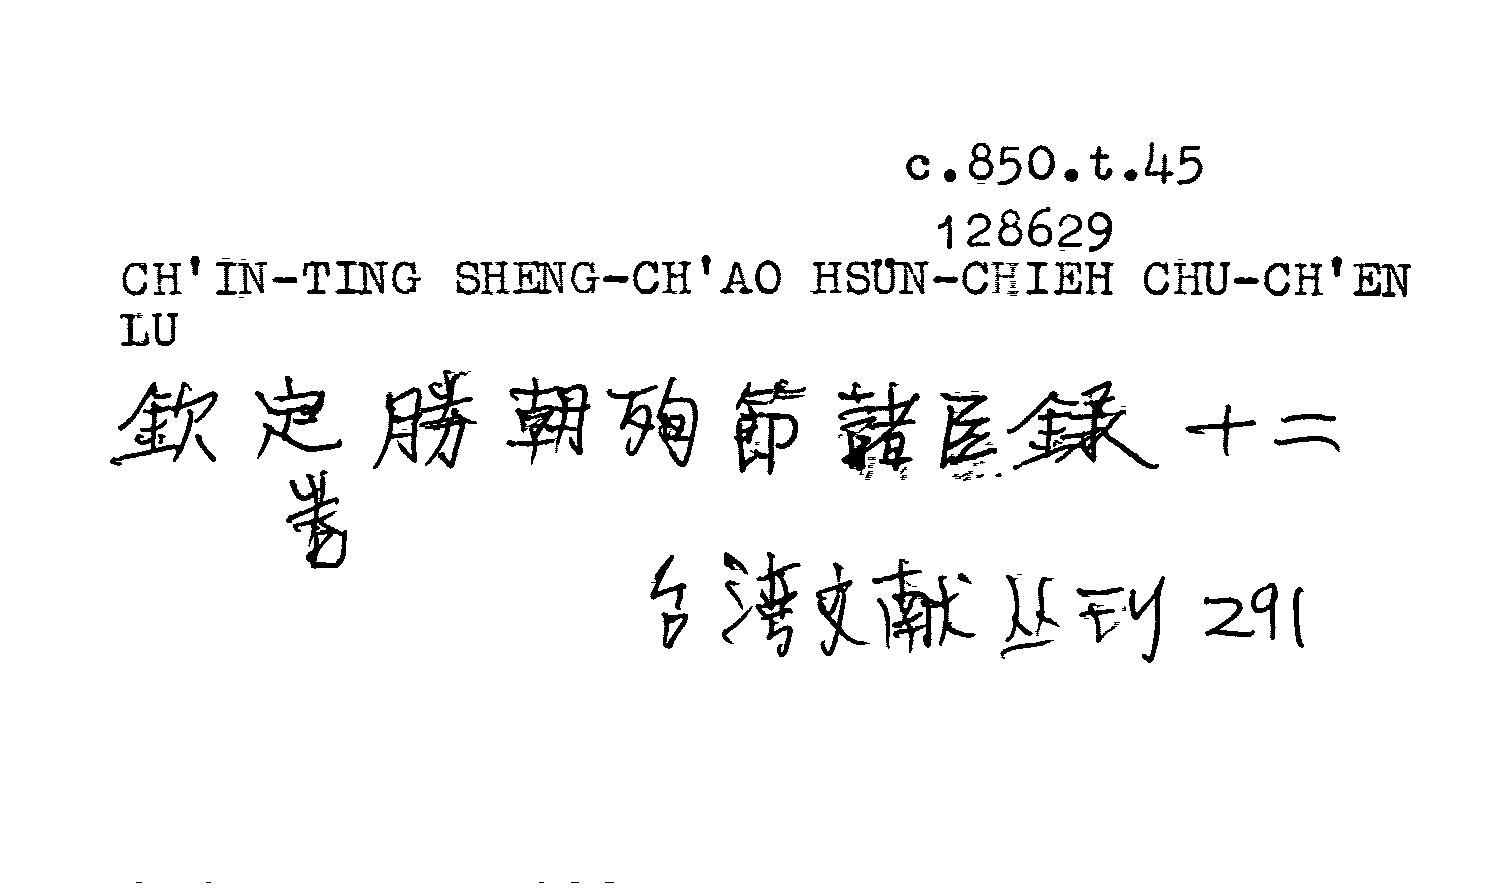 c.850.t.45
128629
CH'IN-TING SHENG-CH'AO HSÜN-CHIEH CHU-CH'EN
LU
欽定勝朝殉節諸臣錄十二
卷
台湾文献丛刊 291